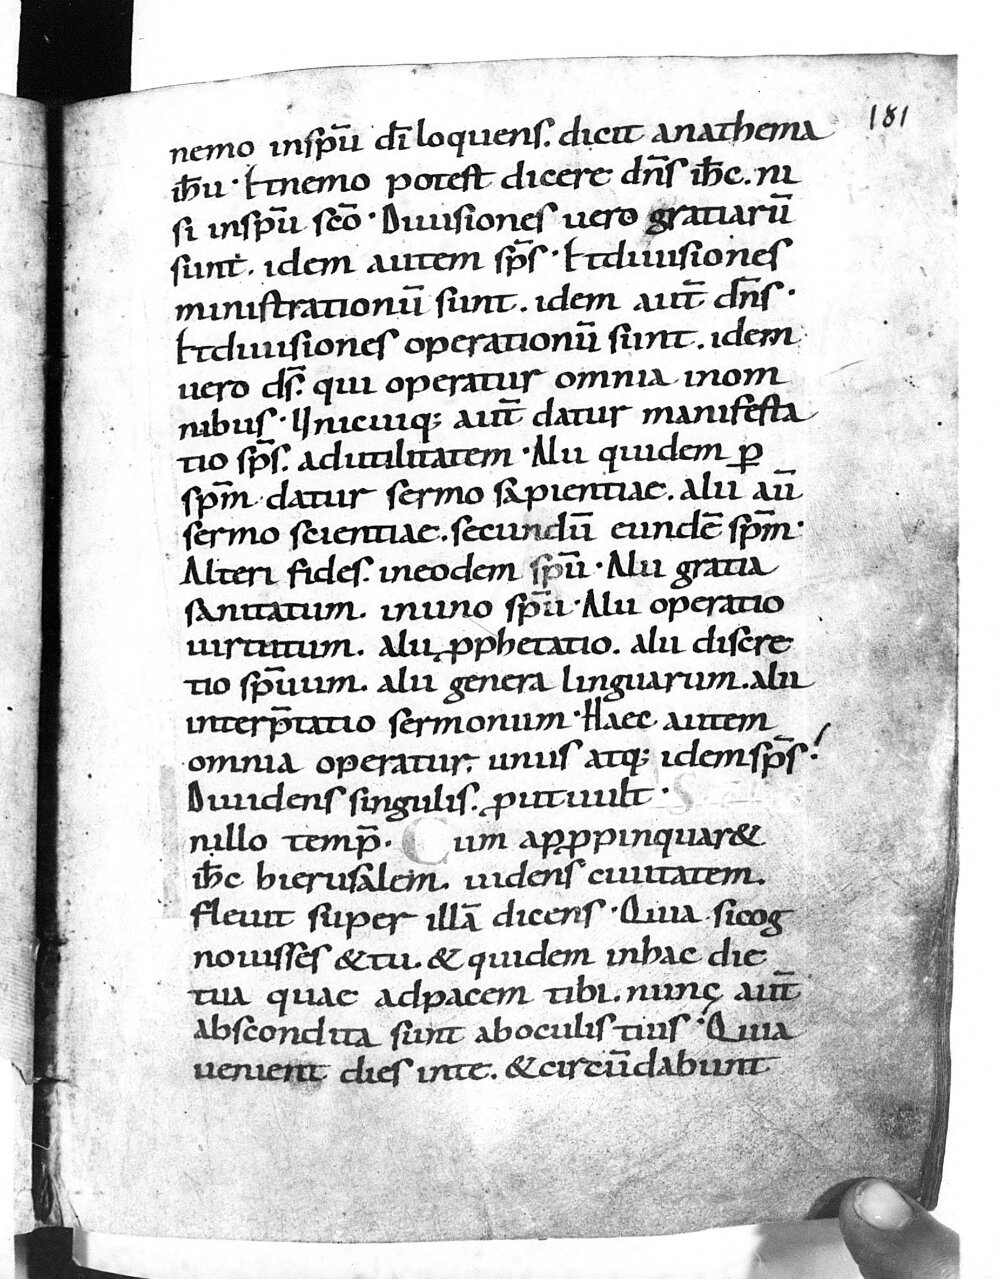 181
nemo inspū dī loquens. dicit anathema
ih̄u · Et nemo potest dicere dn̄s ih̄c. ni
si inspū scō · Diuisiones uero gratiarū
sunt. idem autem sp̄s · Et diuisiones
ministrationū sunt. idem aut̄ dn̄s ·
Et diuisiones operationū sunt. idem
uero ds̄. qui operatur omnia inom
nibus · Unicuiq; aut̄ datur manifesta
tio sp̄s. adutilitatem · Alii quidem ꝑ
sp̄m datur sermo sapientiae. alii aū
sermo scientiae. secundū eundē sp̄m ·
Alteri fides. ineodem spū · Alii gratia
sanitatum. inuno spū · Alii operatio
uirtutum. alii ꝓphetatio. alii discre
tio sp̄uum. alii genera linguarum. alii
interp̄tatio sermonum · Haec autem
omnia operatur, unus atq; idem sp̄s.
Diuidens singulis. ꝓut uult ·
nillo temp̄. Cum apꝓpinquar&
ih̄c hierusalem. uidens ciuitatem.
fleuit super illā dicens · Quia sicog
nouisses &tu. & quidem inhac die
tua quae adpacem tibi. nunc aut̄
abscondita sunt aboculis tuis · Quia
uenient dies inte. &circūdabunt